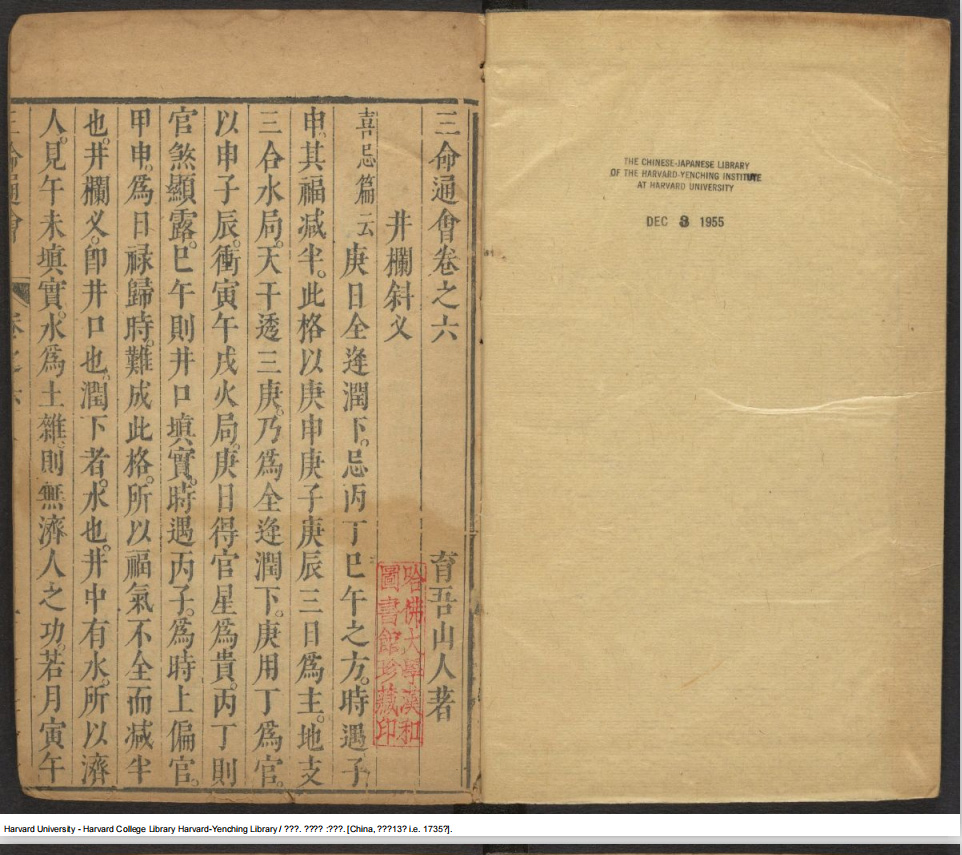 三命通會卷之六
育吾山人著
井欄斜义
喜忌篇云庚日全逢潤下。忌丙丁巳午之方。時遇子
申。其福减半。此格以庚申庚子庚辰三日爲主。地支
三合水局。天干透三庚。乃爲全逢潤下。庚用丁爲官。
以申子辰。衝寅午戌火局。庚日得官星爲貴。丙丁則
官煞顯露。巳午則井口填實。時遇丙子。爲時上偏官。
甲申。爲日禄歸時。難成此格。所以福氣不全而减半
也。井欄义。卽井口也。潤下者。水也。井中有水。所以濟
人。見午未填實。水爲土雜。則無濟人之功。若月寅午
哈佛大學漢和
圖書館珍藏印
THE CHINESE-JAPANESE LIBRARY
OF THE HARVARD-YENCHING INSTITUTE
AT HARVARD UNIVERSITY
DEC 8 1955
Harvard University - Harvard College Library Harvard-Yenching Library / ???. ???? :???. [China, ???13? i.e. 1735?].